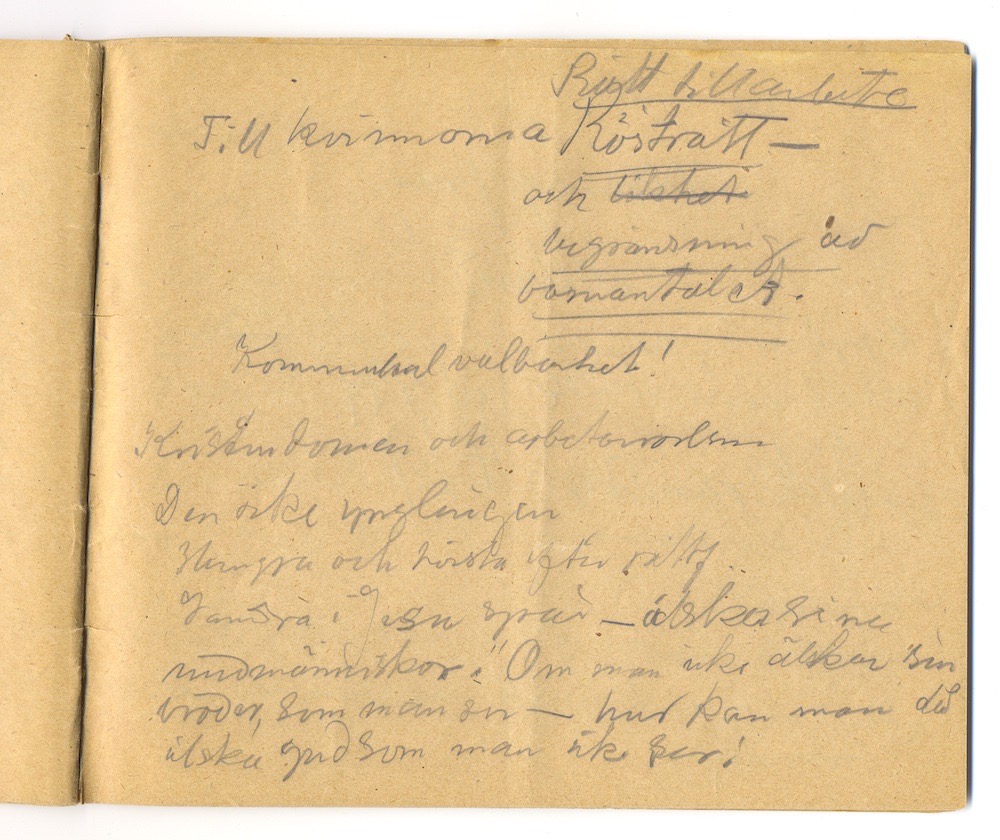 Rätt till arbete
Till kvinnorna Rösträtt —
och likhet
begränsning av
barnantalet.
Kommunal valbarhet!
Kristendomen och arbetarrörlsen
Den rike ynglingen
Hungra och törsta efter rättf.
Vandra i Jesu spår — älska sina
medmänniskor." Om man icke älskar sin
broder, som man ser — hur kan man då
älska gud som man icke ser!